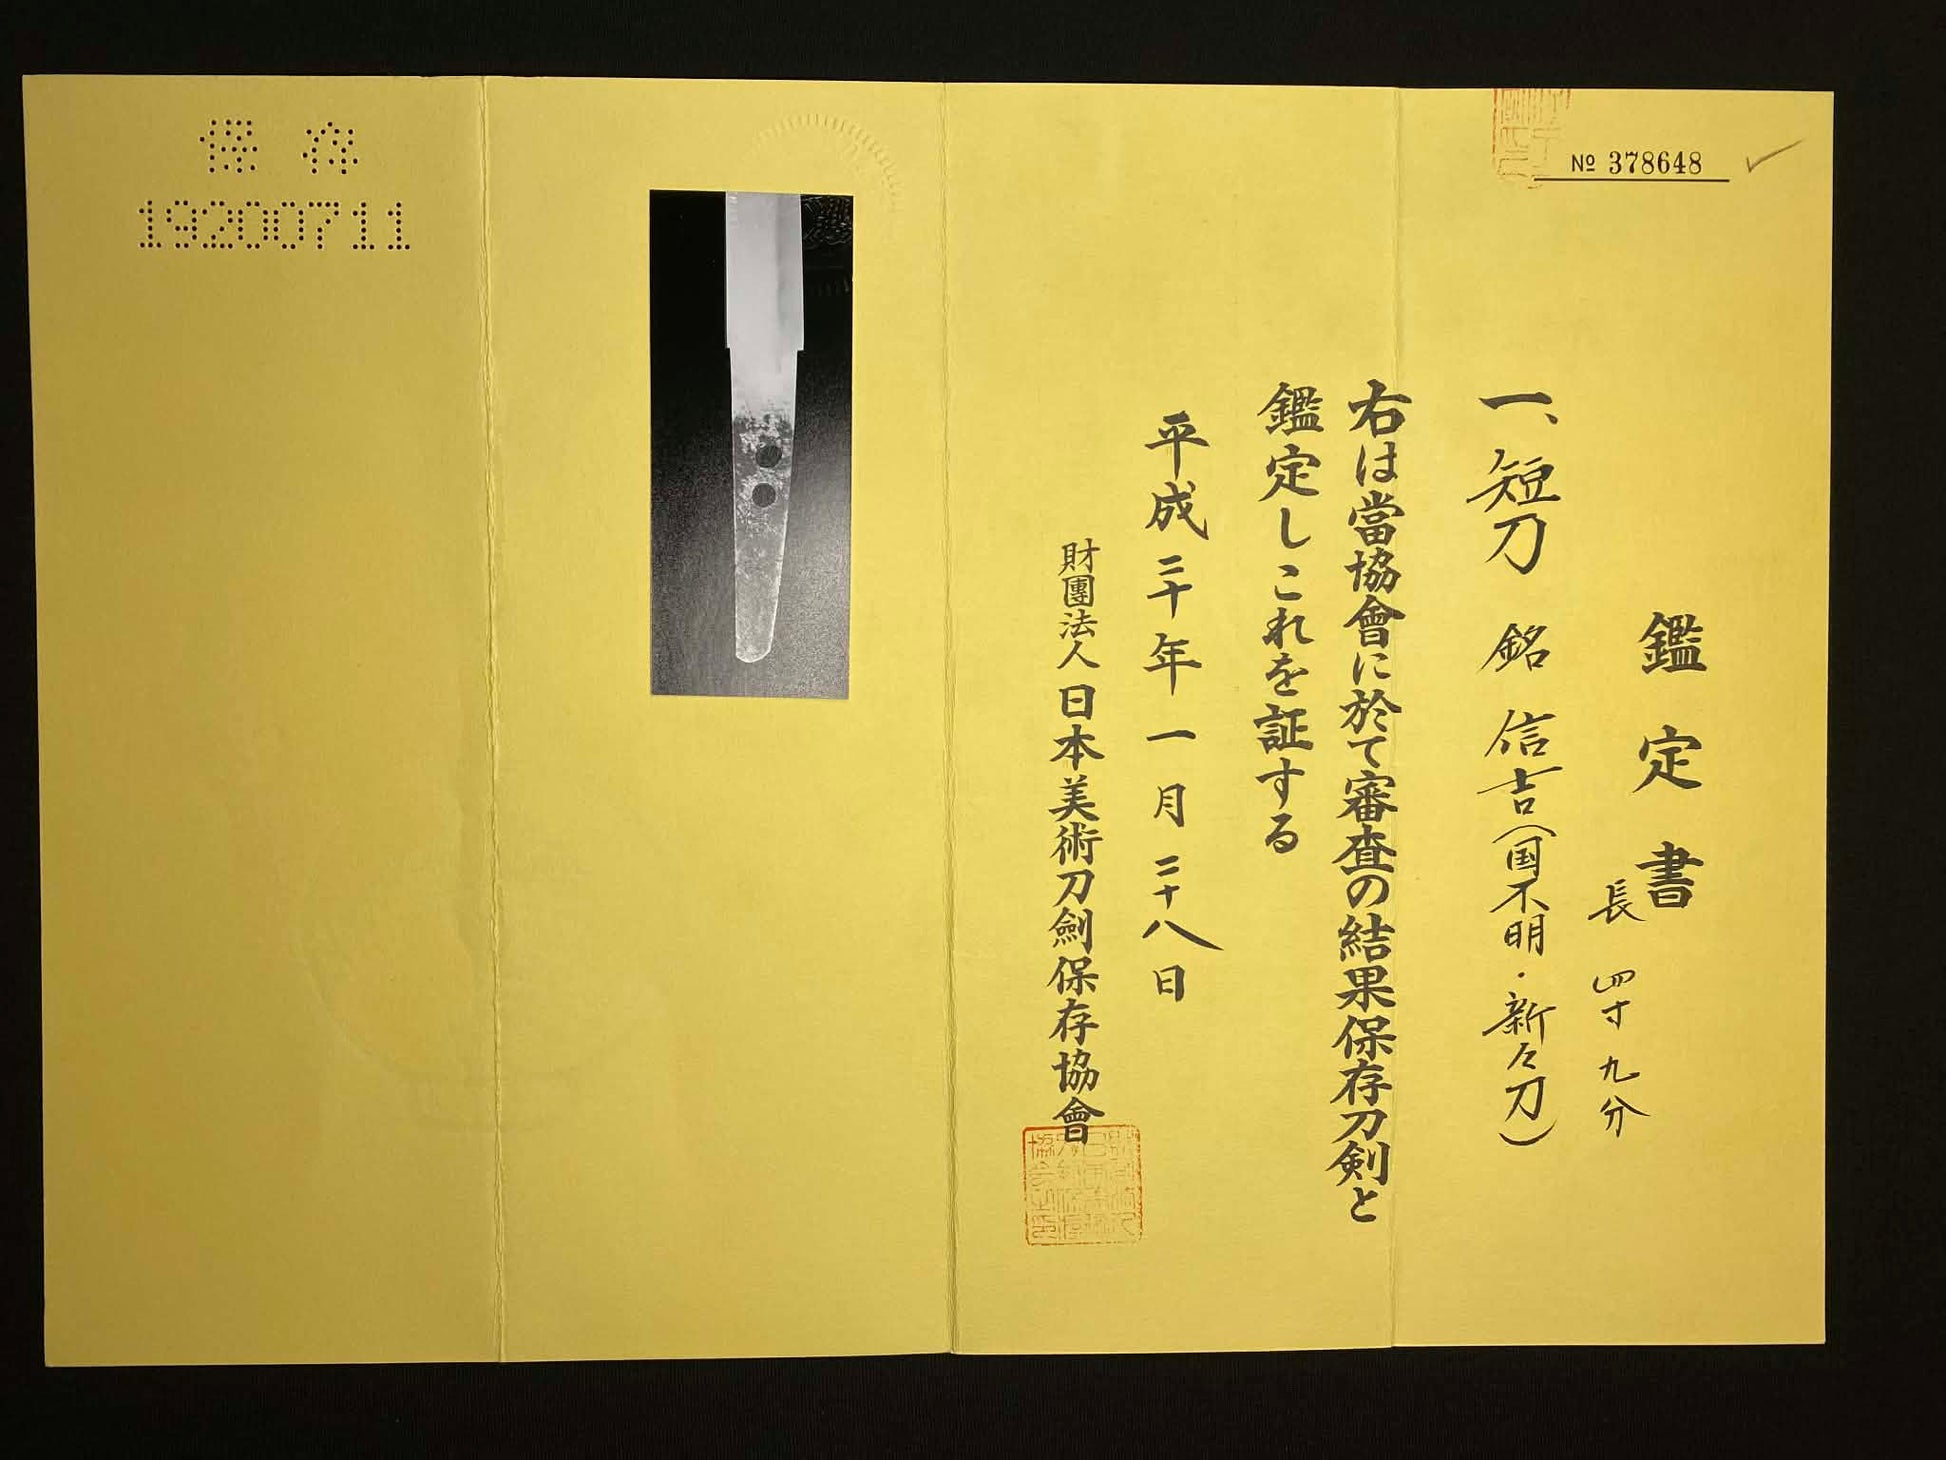 № 378648
鑑定書
長 四寸九分
一、短刀 銘 信吉(国不明・新々刀)
右は當協會に於て審査の結果保存刀剣と
鑑定しこれを証する
平成二十年一月二十八日
財團法人日本美術刀劍保存協會
保存
19200711